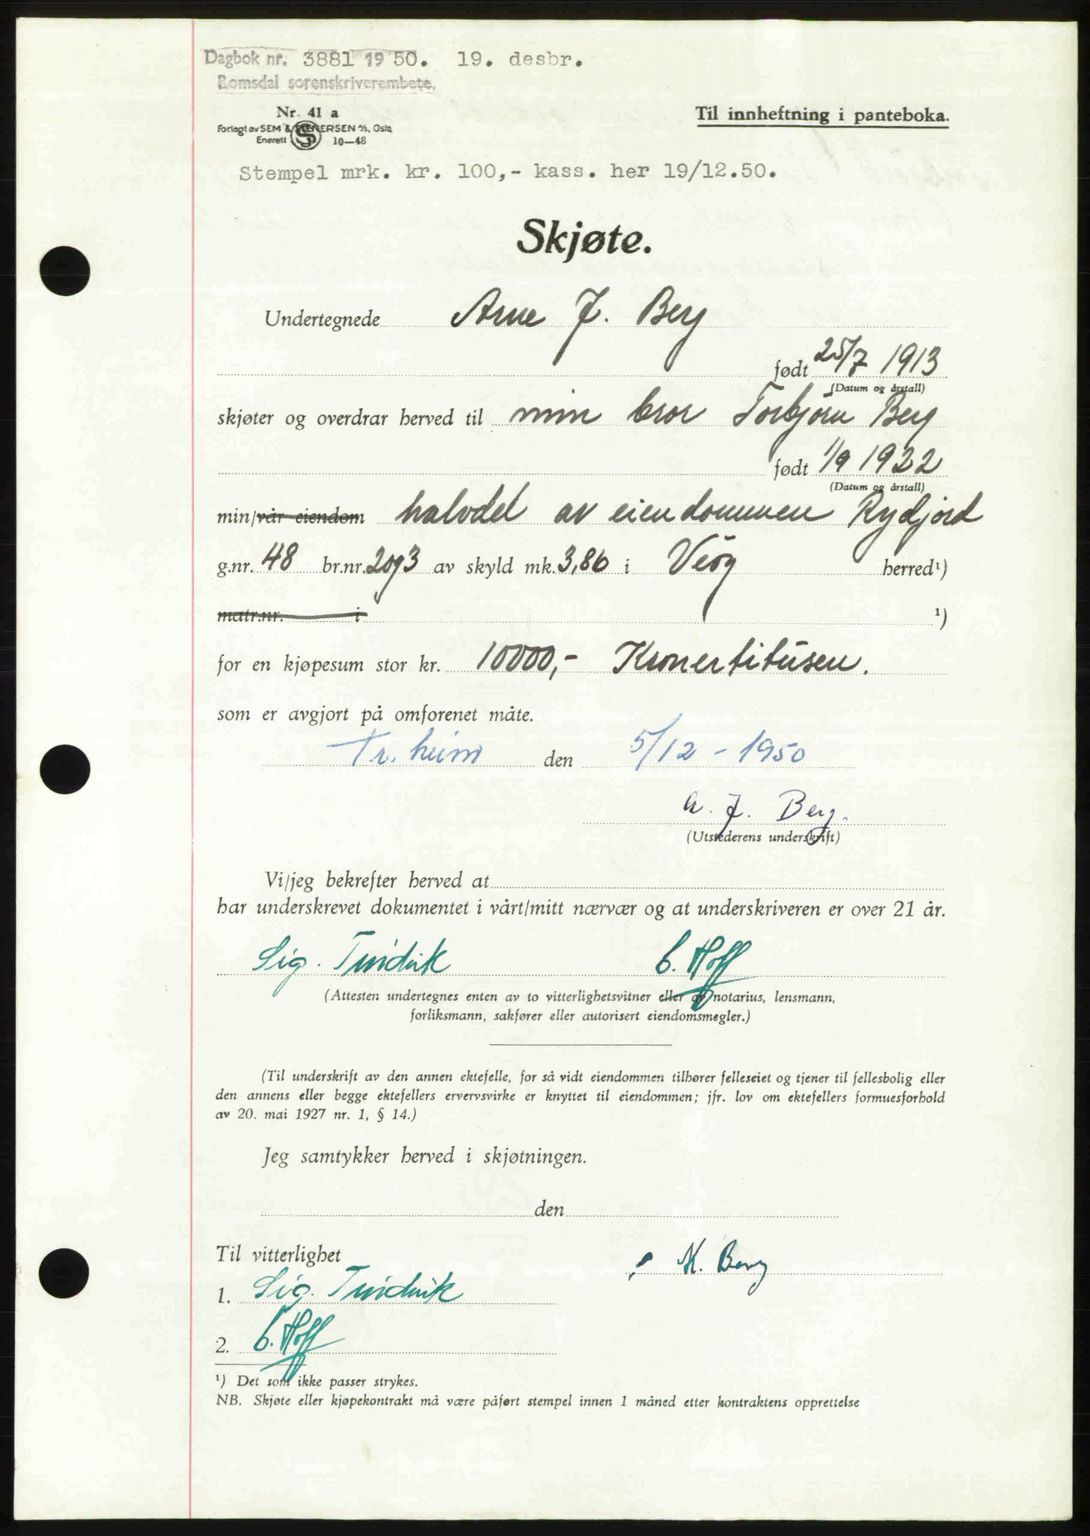 Dagbok nr. 3881 1950. 19. desbr.
Romsdal sorenskriverembete.
Nr. 41 a
Forlagt av SEM & STENERSEN A/S, Oslo
Enerett 10—48
Til innheftning i panteboka.
Stempel mrk. kr. 100,- kass. her 19/12.50.
Skjøte.
Undertegnede Arne J. Berg
født 25/7 1913
(Datum og årstall)
skjøter og overdrar herved til min bror Torbjørn Berg
født 1/9 1922
(Datum og årstall)
min/vår eiendom halvdel av eiendommen Rydjord
g.nr. 48 br.nr. 2 og 3 av skyld mk. 3,86 i Veøy herred¹)
matr.nr. i ¹)
for en kjøpesum stor kr. 10000,- Kronertitusen.
som er avgjort på omforenet måte.
Tr.heim den 5/12 - 1950
A. J. Berg.
(Utstederens underskrift)
Vi/jeg bekrefter herved at
har underskrevet dokumentet i vårt/mitt nærvær og at underskriveren er over 21 år.
Sig. Tindvik C. Hoff
(Attesten undertegnes enten av to vitterlighetsvitner eller av notarius, lensmann,
forliksmann, sakfører eller autorisert eiendomsmegler.)
(Til underskrift av den annen ektefelle, for så vidt eiendommen tilhører felleseiet og tjener til fellesbolig eller
den annens eller begge ektefellers ervervsvirke er knyttet til eiendommen; jfr. lov om ektefellers formuesforhold
av 20. mai 1927 nr. 1, § 14.)
Jeg samtykker herved i skjøtningen.
den
Til vitterlighet
K. Berg
1. Sig. Tindvik
2. C. Hoff
¹) Det som ikke passer strykes.
NB. Skjøte eller kjøpekontrakt må være påført stempel innen 1 måned etter kontraktens opprettelse